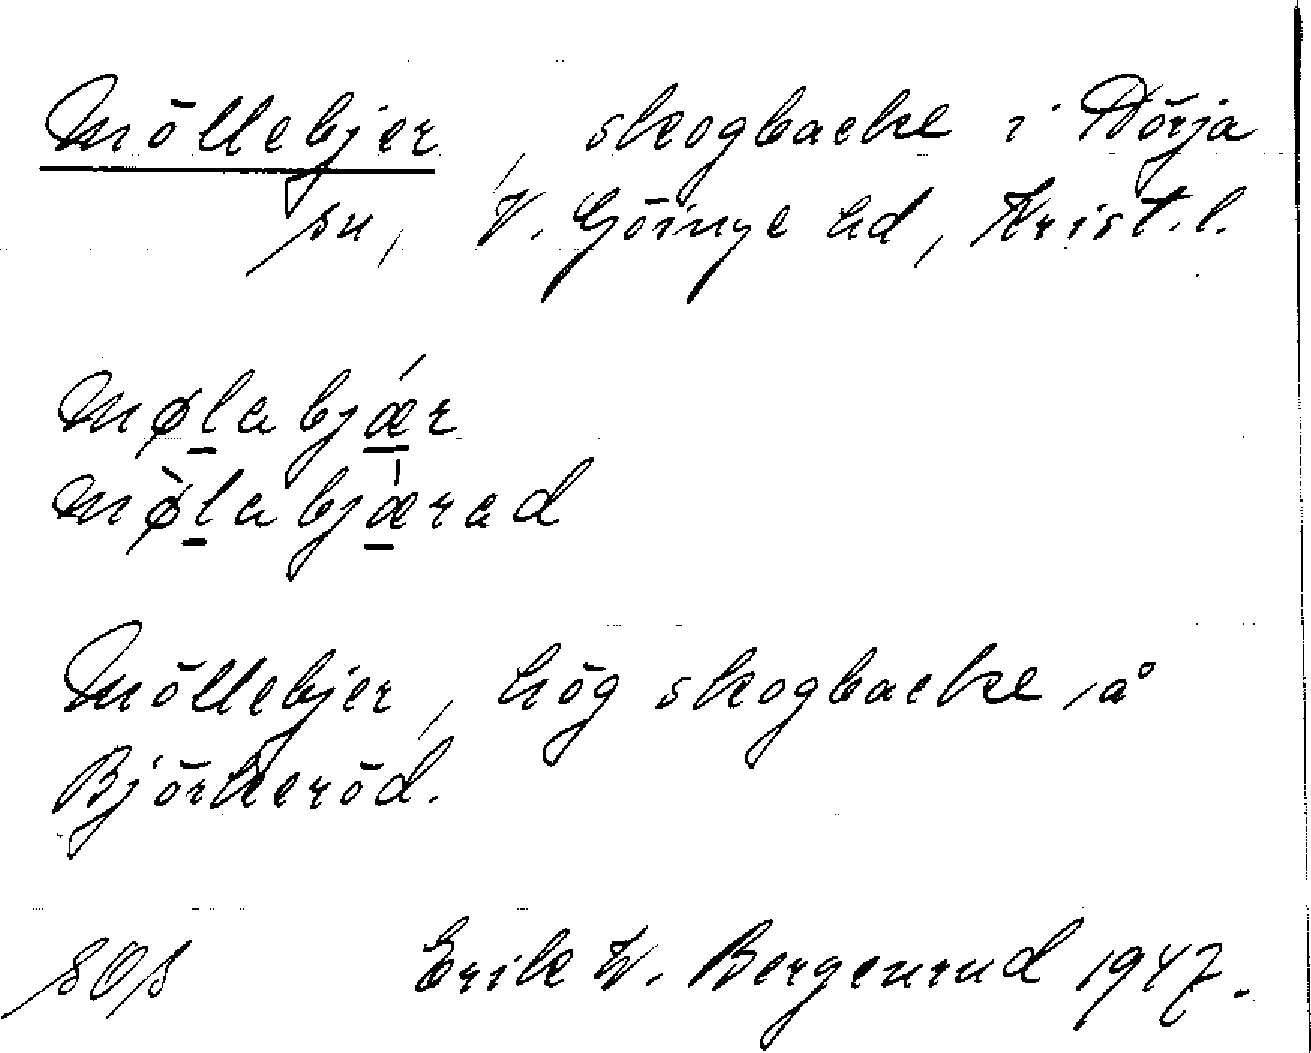 Möllebjer, skogbacke i Dörja
sn, V. Göinge hd, Krist. l.
Mølabjǽr
Mø̀labjærad
Möllebjer, hög skogbacke, å
Björkeröd.
SOS Erik W. Bergenrud 1947.